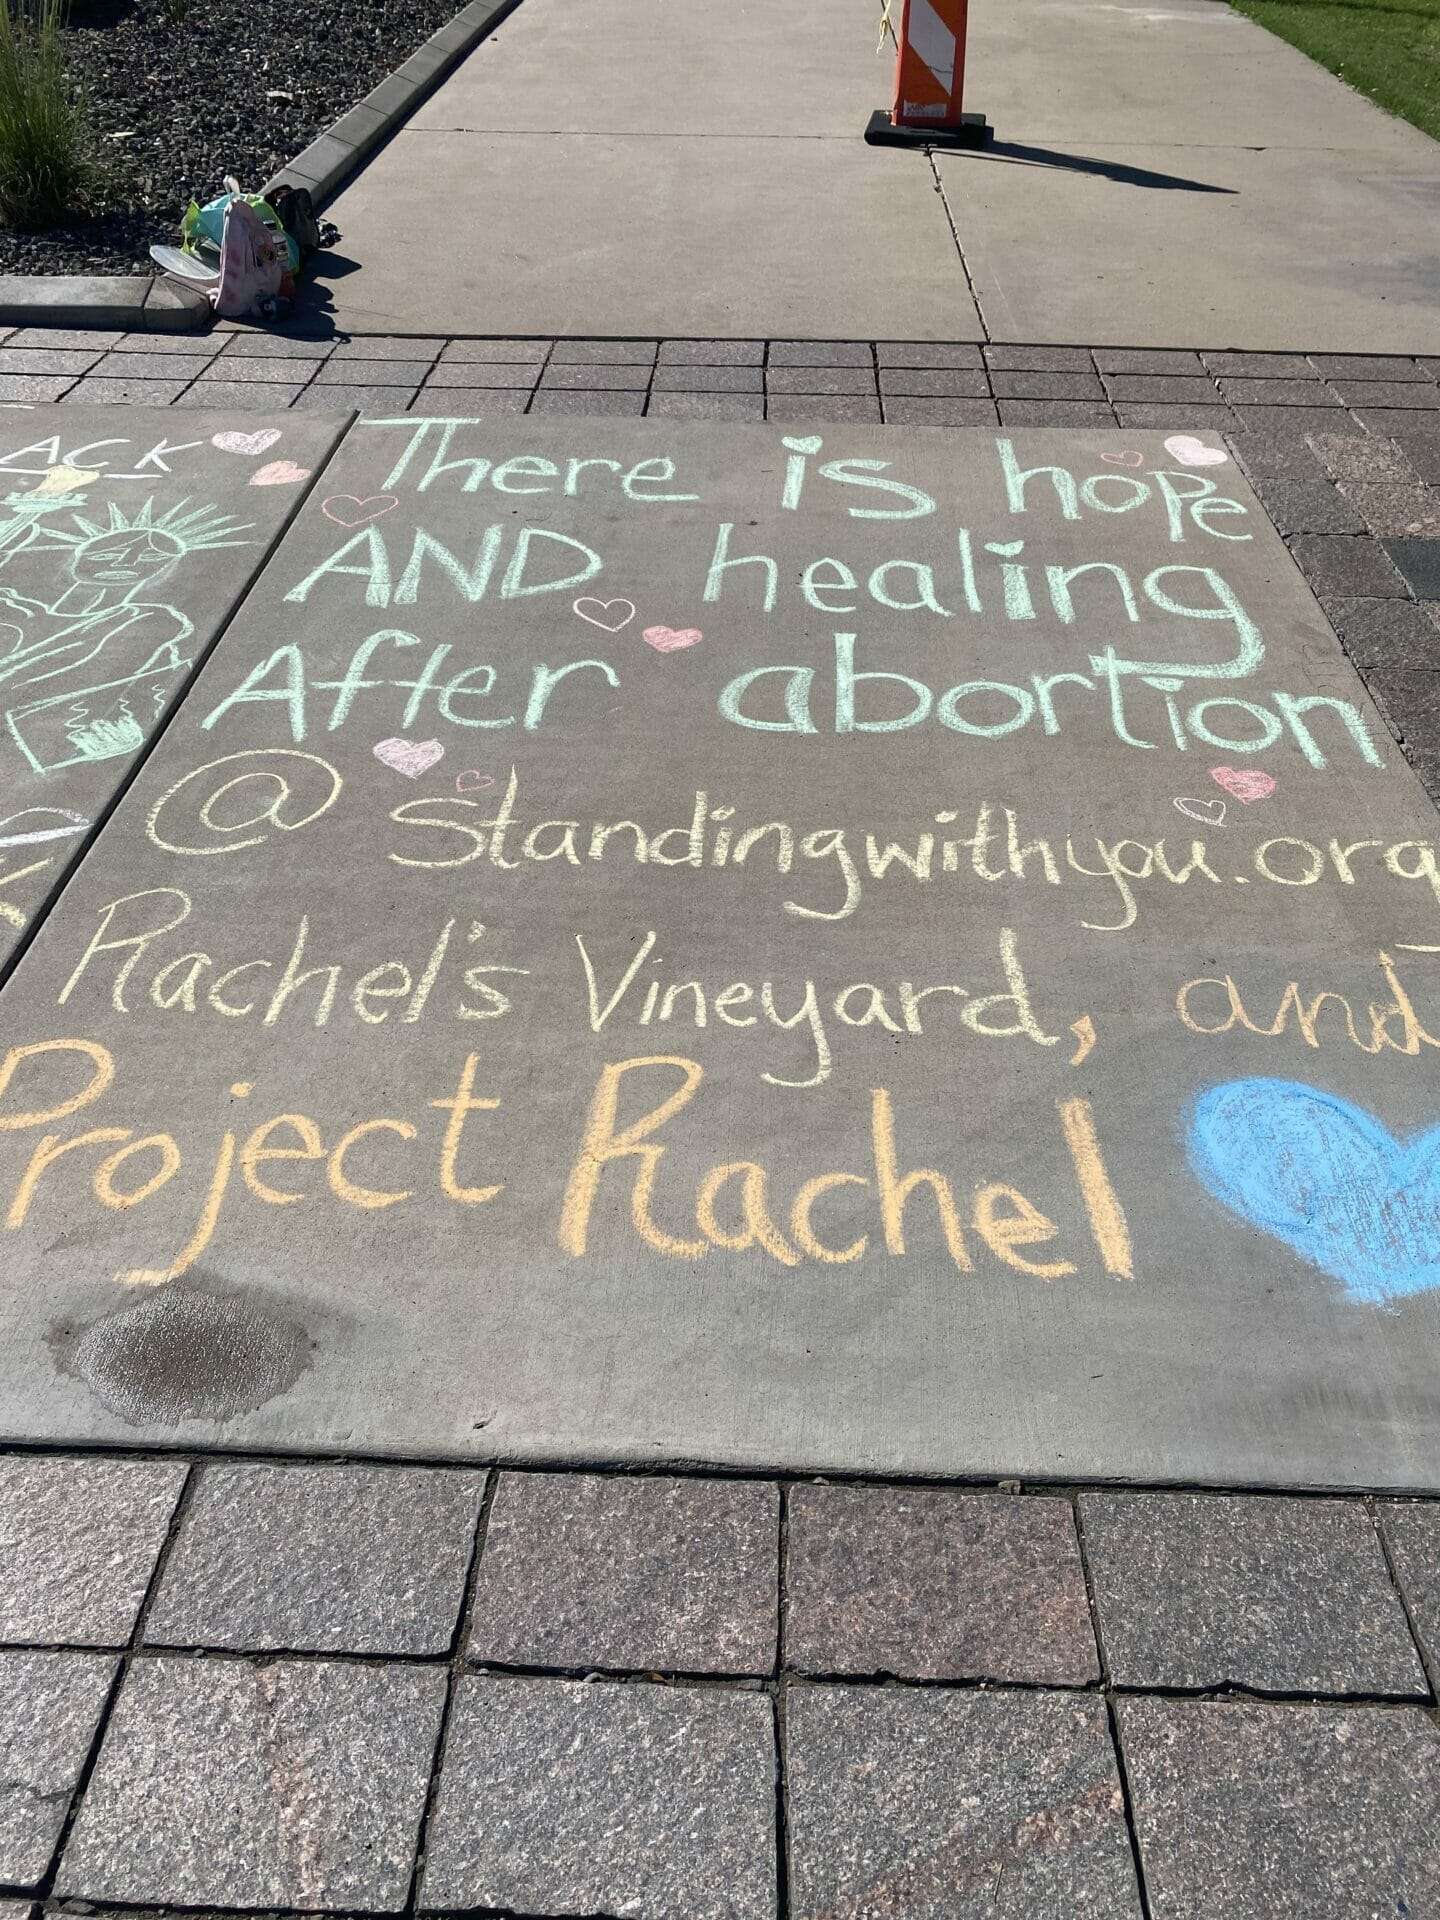 ACK
There is hope
AND healing
After abortion
@ Standingwithyou.org
Rachel's Vineyard, and
Project Rachel